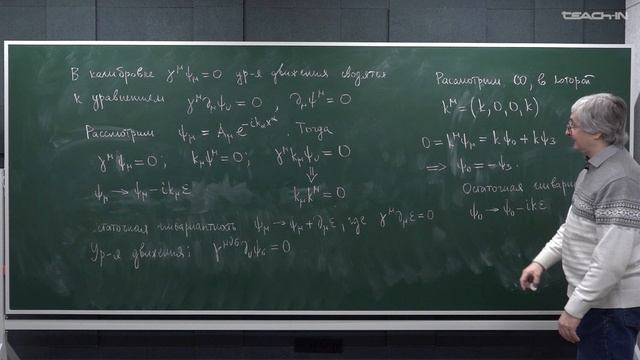 TEACH-IN
В калибровке γ^μ ψ_μ = 0 ур-я движения сводятся
к уравнениям γ^μ ∂_μ ψ_ν = 0, ∂_μ ψ^μ = 0
Рассмотрим ψ_μ = A_μ e^{-ik_α x^α}. Тогда
γ^μ ψ_μ = 0; k_μ ψ^μ = 0; γ^μ k_μ ψ_ν = 0
⇓
ψ_μ → ψ_μ - ik_μ ε k_μ k^μ = 0
статочная инвариантность ψ_μ → ψ_μ + ∂_μ ε, где γ^μ ∂_μ ε = 0
Ур-я движения: γ^{μνσ} ∂_ν ψ_σ = 0
Рассмотрим СО, в которой
k^μ = (k, 0, 0, k)
0 = k^μ ψ_μ = k ψ_0 + k ψ_3
⇒ ψ_0 = -ψ_3.
Остаточная инвари
ψ_0 → ψ_0 - ikε